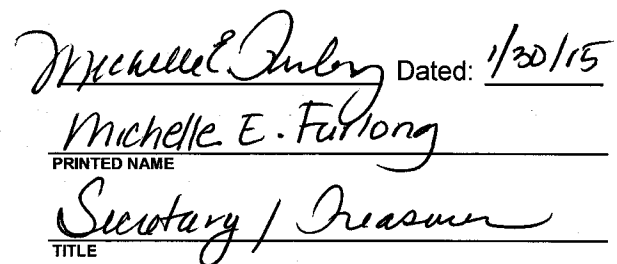 Michelle E. Furlong Dated: 1/30/15
Michelle E. Furlong
PRINTED NAME
Secretary / Treasurer
TITLE